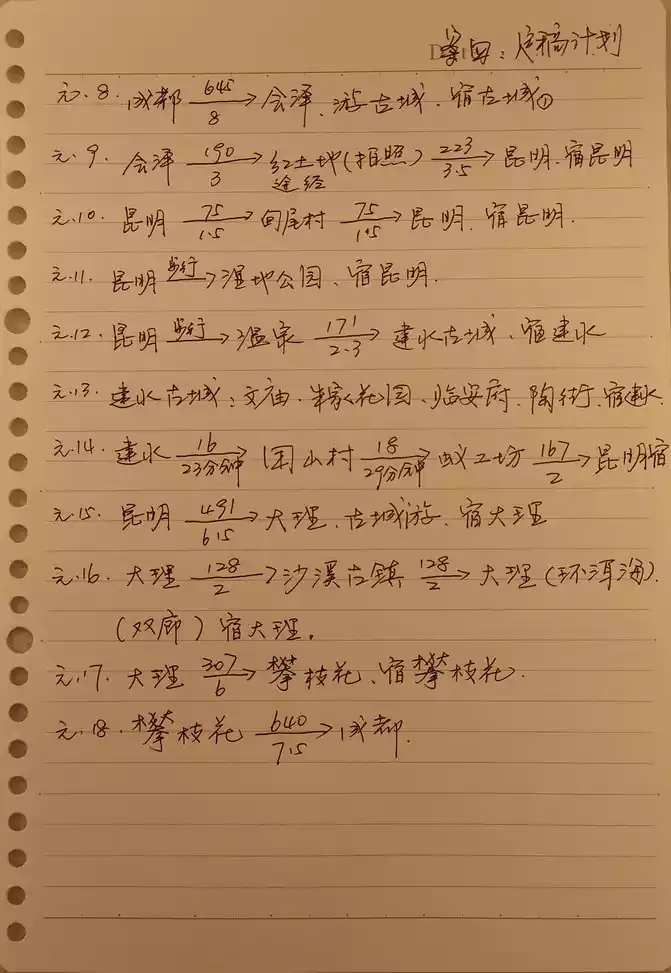 定稿计划
元.8. 成都 645/8→ 会泽、游古城、宿古城①
元.9. 会泽 190/3→ 红土地(拍照) 223/3.5→ 昆明.宿昆明
途经
元.10. 昆明 75/1.5→ 回尾村 75/1.5→ 昆明、宿昆明.
元.11. 昆明 步行→湿地公园、宿昆明.
元.12. 昆明 步行→温泉 171/2.3→ 建水古城、宿建水
元.13. 建水古城:文庙.朱家花园、临安府、陶街、宿建水
元.14. 建水 16/23分钟→ 团山村 18/29分钟→ 蚁工坊 167/2→昆明宿
元.15. 昆明 491/6.5→ 大理、古城游、宿大理
元.16. 大理 128/2→沙溪古镇 128/2→ 大理(环洱海).
(双廊)宿大理.
元.17. 大理 307/6→ 攀枝花、宿攀枝花.
元.18. 攀枝花 640/7.5→成都.